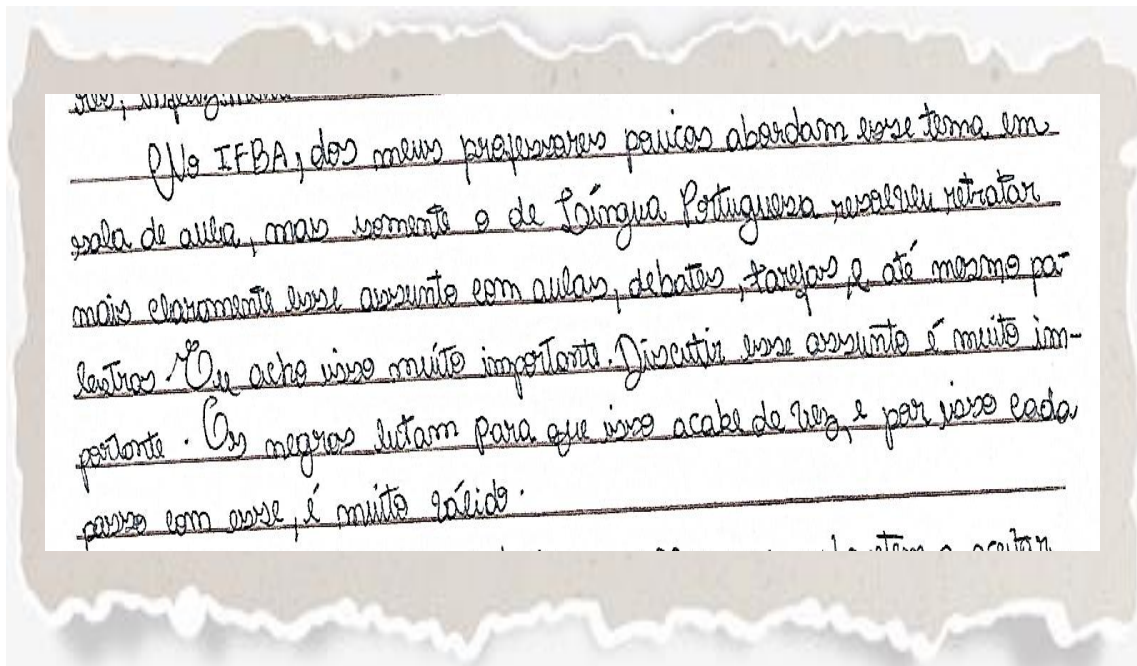 No IFBA, dos meus professores poucos abordam esse tema em
sala de aula, mas somente o de Língua Portuguesa resolveu retratar
mais claramente esse assunto com aulas, debates, tarefas e até mesmo pa-
lestras. Eu acho isso muito importante. Discutir esse assunto é muito im-
portante. Os negros lutam para que isso acabe de vez, e por isso cada
passo com esse, é muito válido.